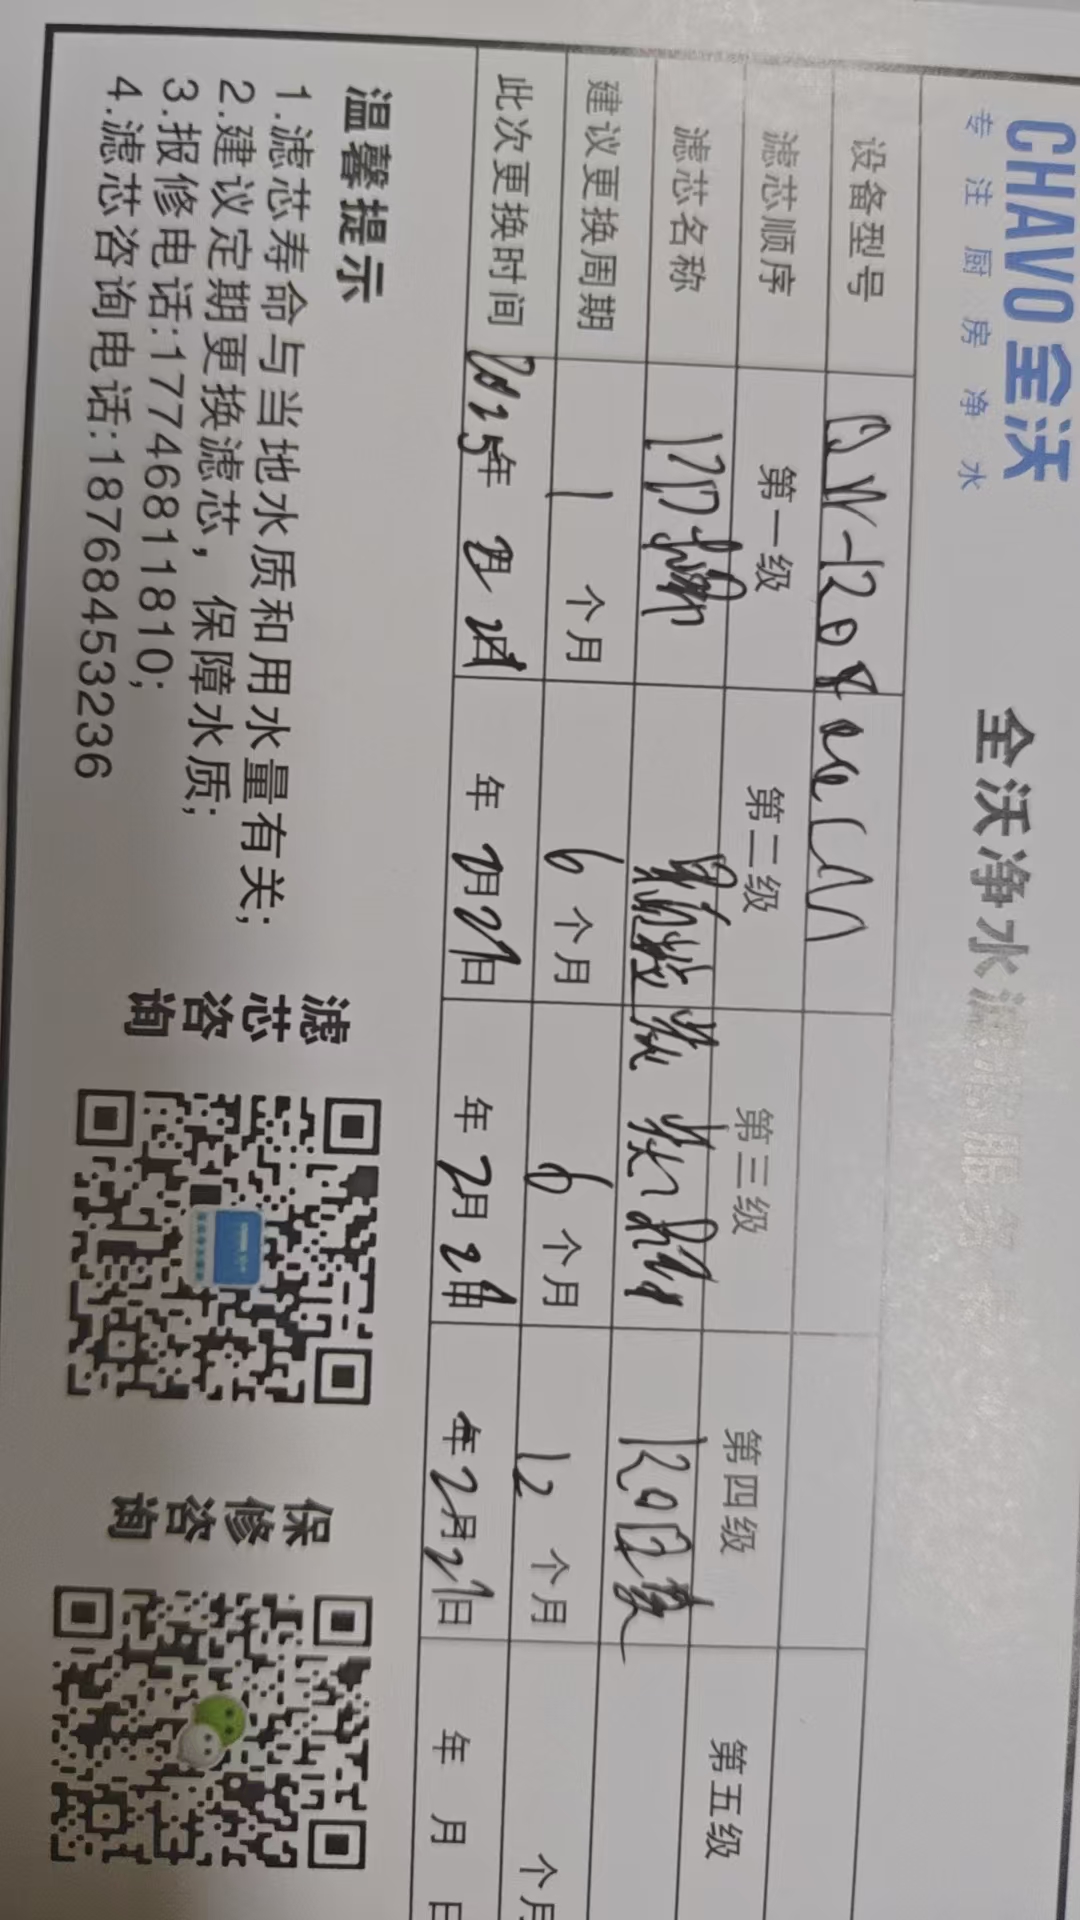 CHAVO全沃
专注厨房净水
全沃净水
设备型号
滤芯顺序 第一级 第二级 第三级 第四级 第五级
滤芯名称
建议更换周期 1个月 6个月 6个月 12个月 个月
此次更换时间 2025年2月21日 年2月21日 年2月21日 年2月21日 年 月 日
温馨提示
1.滤芯寿命与当地水质和用水量有关;
2.建议定期更换滤芯，保障水质;
3.报修电话:17746811810;
4.滤芯咨询电话:18768453236
滤芯咨询
保修咨询